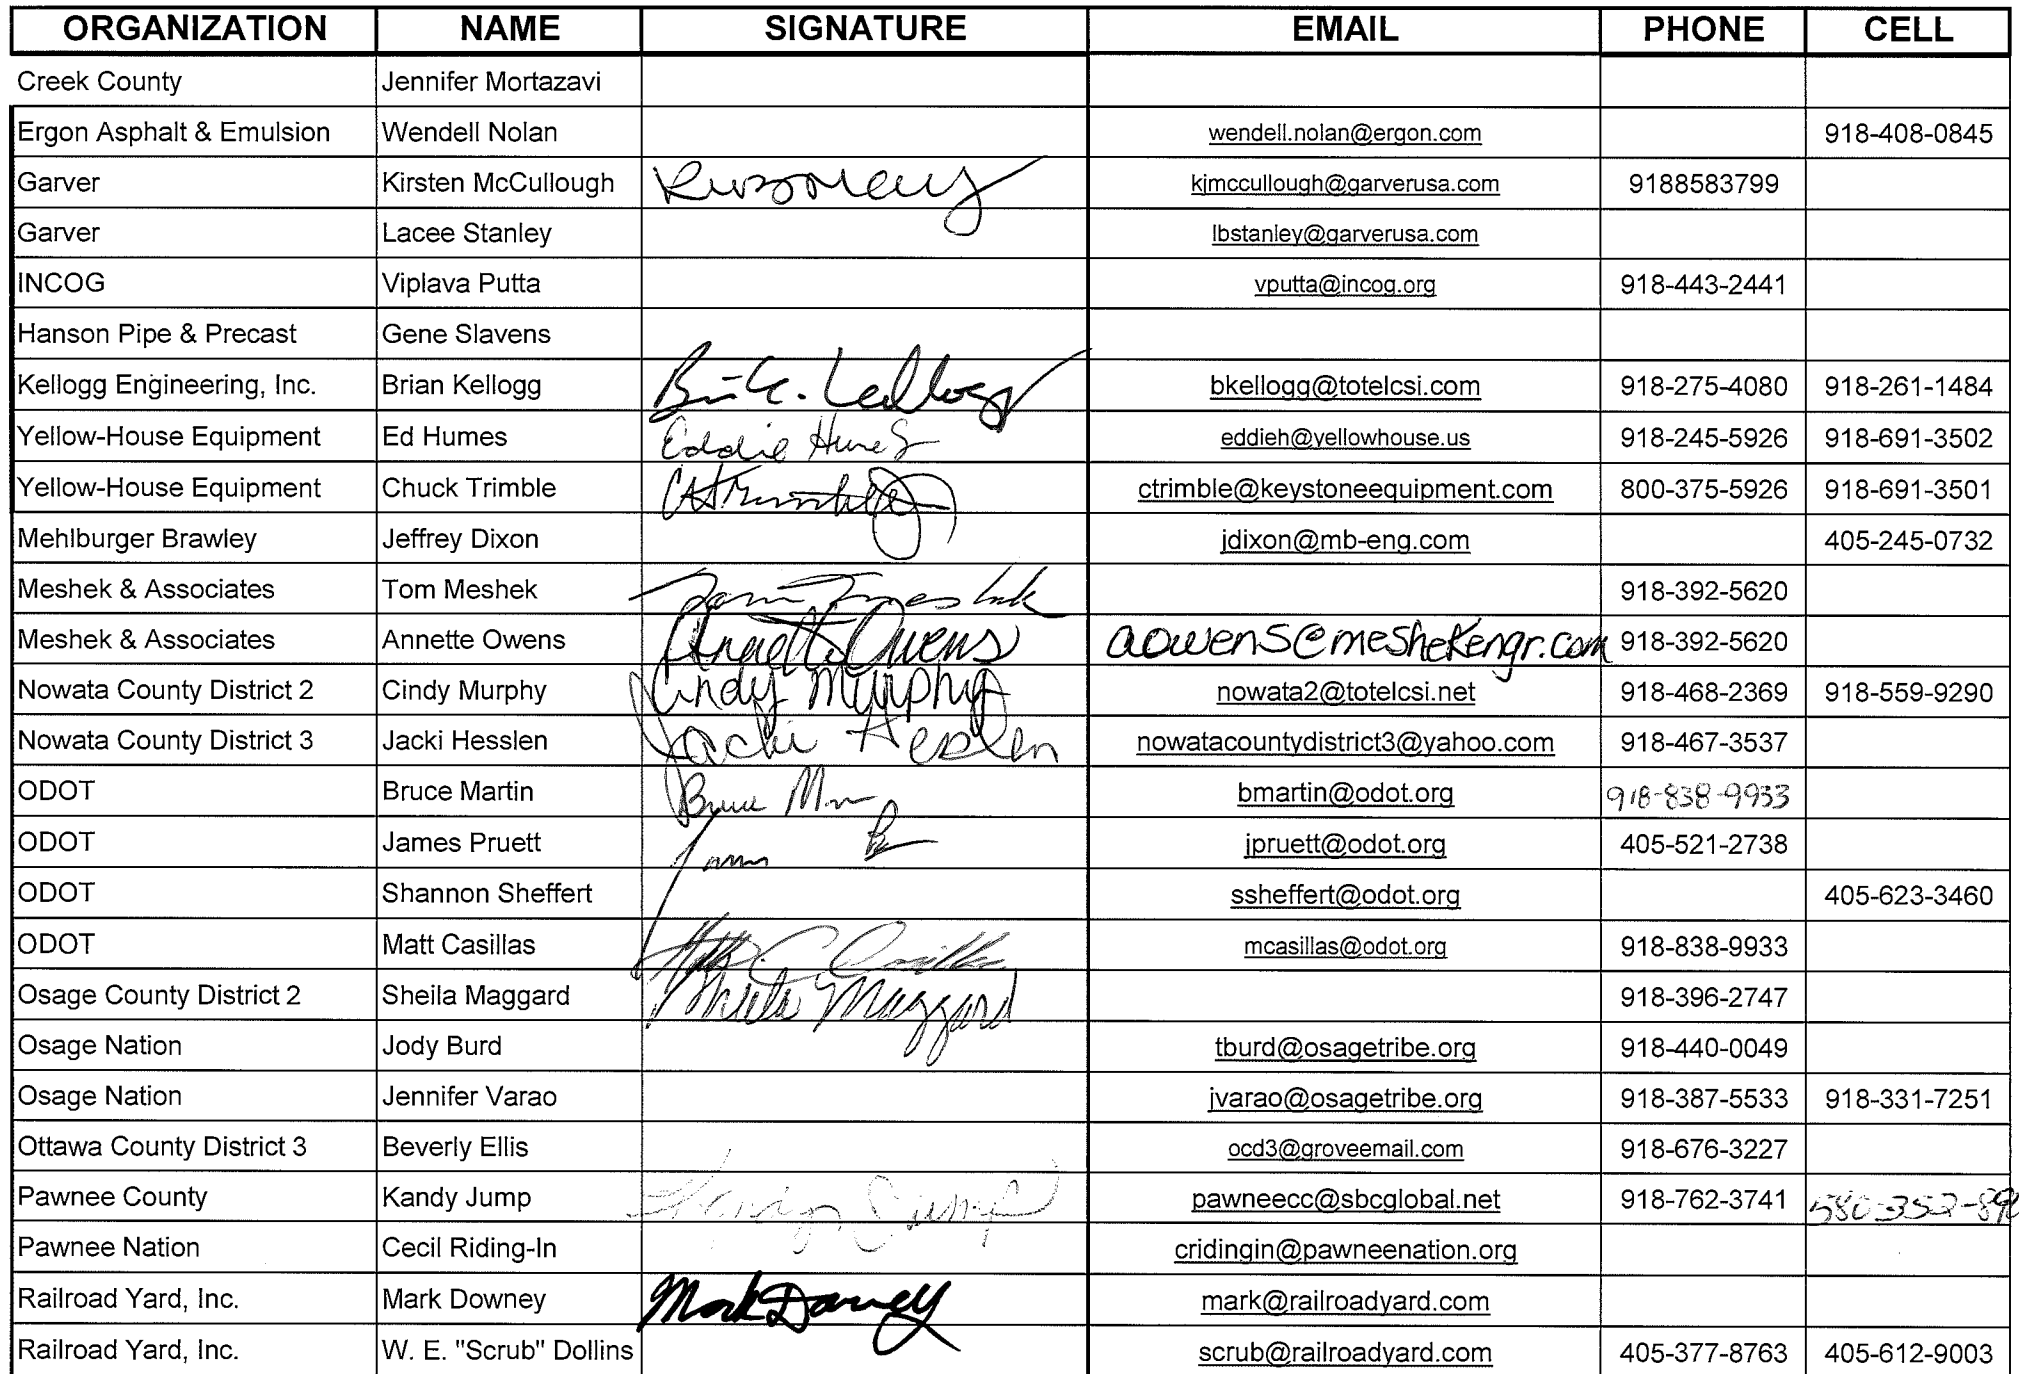 ORGANIZATION NAME SIGNATURE EMAIL PHONE CELL
Creek County Jennifer Mortazavi
Ergon Asphalt & Emulsion Wendell Nolan wendell.nolan@ergon.com 918-408-0845
Garver Kirsten McCullough kjmccullough@garverusa.com 9188583799
Garver Lacee Stanley lbstanley@garverusa.com
INCOG Viplava Putta vputta@incog.org 918-443-2441
Hanson Pipe & Precast Gene Slavens
Kellogg Engineering, Inc. Brian Kellogg Kellogg bkellogg@totelcsi.com 918-275-4080 918-261-1484
Yellow-House Equipment Ed Humes Eddie Humes eddieh@yellowhouse.us 918-245-5926 918-691-3502
Yellow-House Equipment Chuck Trimble Trimble ctrimble@keystoneequipment.com 800-375-5926 918-691-3501
Mehlburger Brawley Jeffrey Dixon jdixon@mb-eng.com 405-245-0732
Meshek & Associates Tom Meshek Tom Meshek 918-392-5620
Meshek & Associates Annette Owens Annette Owens aowens@meshekengr.com 918-392-5620
Nowata County District 2 Cindy Murphy Cindy Murphy nowata2@totelcsi.net 918-468-2369 918-559-9290
Nowata County District 3 Jacki Hesslen Jacki Hesslen nowatacountydistrict3@yahoo.com 918-467-3537
ODOT Bruce Martin Bruce bmartin@odot.org 918-838-9933
ODOT James Pruett jpruett@odot.org 405-521-2738
ODOT Shannon Sheffert ssheffert@odot.org 405-623-3460
ODOT Matt Casillas Matt C Casillas mcasillas@odot.org 918-838-9933
Osage County District 2 Sheila Maggard Sheila Maggard 918-396-2747
Osage Nation Jody Burd tburd@osagetribe.org 918-440-0049
Osage Nation Jennifer Varao jvarao@osagetribe.org 918-387-5533 918-331-7251
Ottawa County District 3 Beverly Ellis ocd3@groveemail.com 918-676-3227
Pawnee County Kandy Jump Kandy Jump pawneecc@sbcglobal.net 918-762-3741
Pawnee Nation Cecil Riding-In cridingin@pawneenation.org
Railroad Yard, Inc. Mark Downey Mark Downey mark@railroadyard.com
Railroad Yard, Inc. W. E. "Scrub" Dollins scrub@railroadyard.com 405-377-8763 405-612-9003